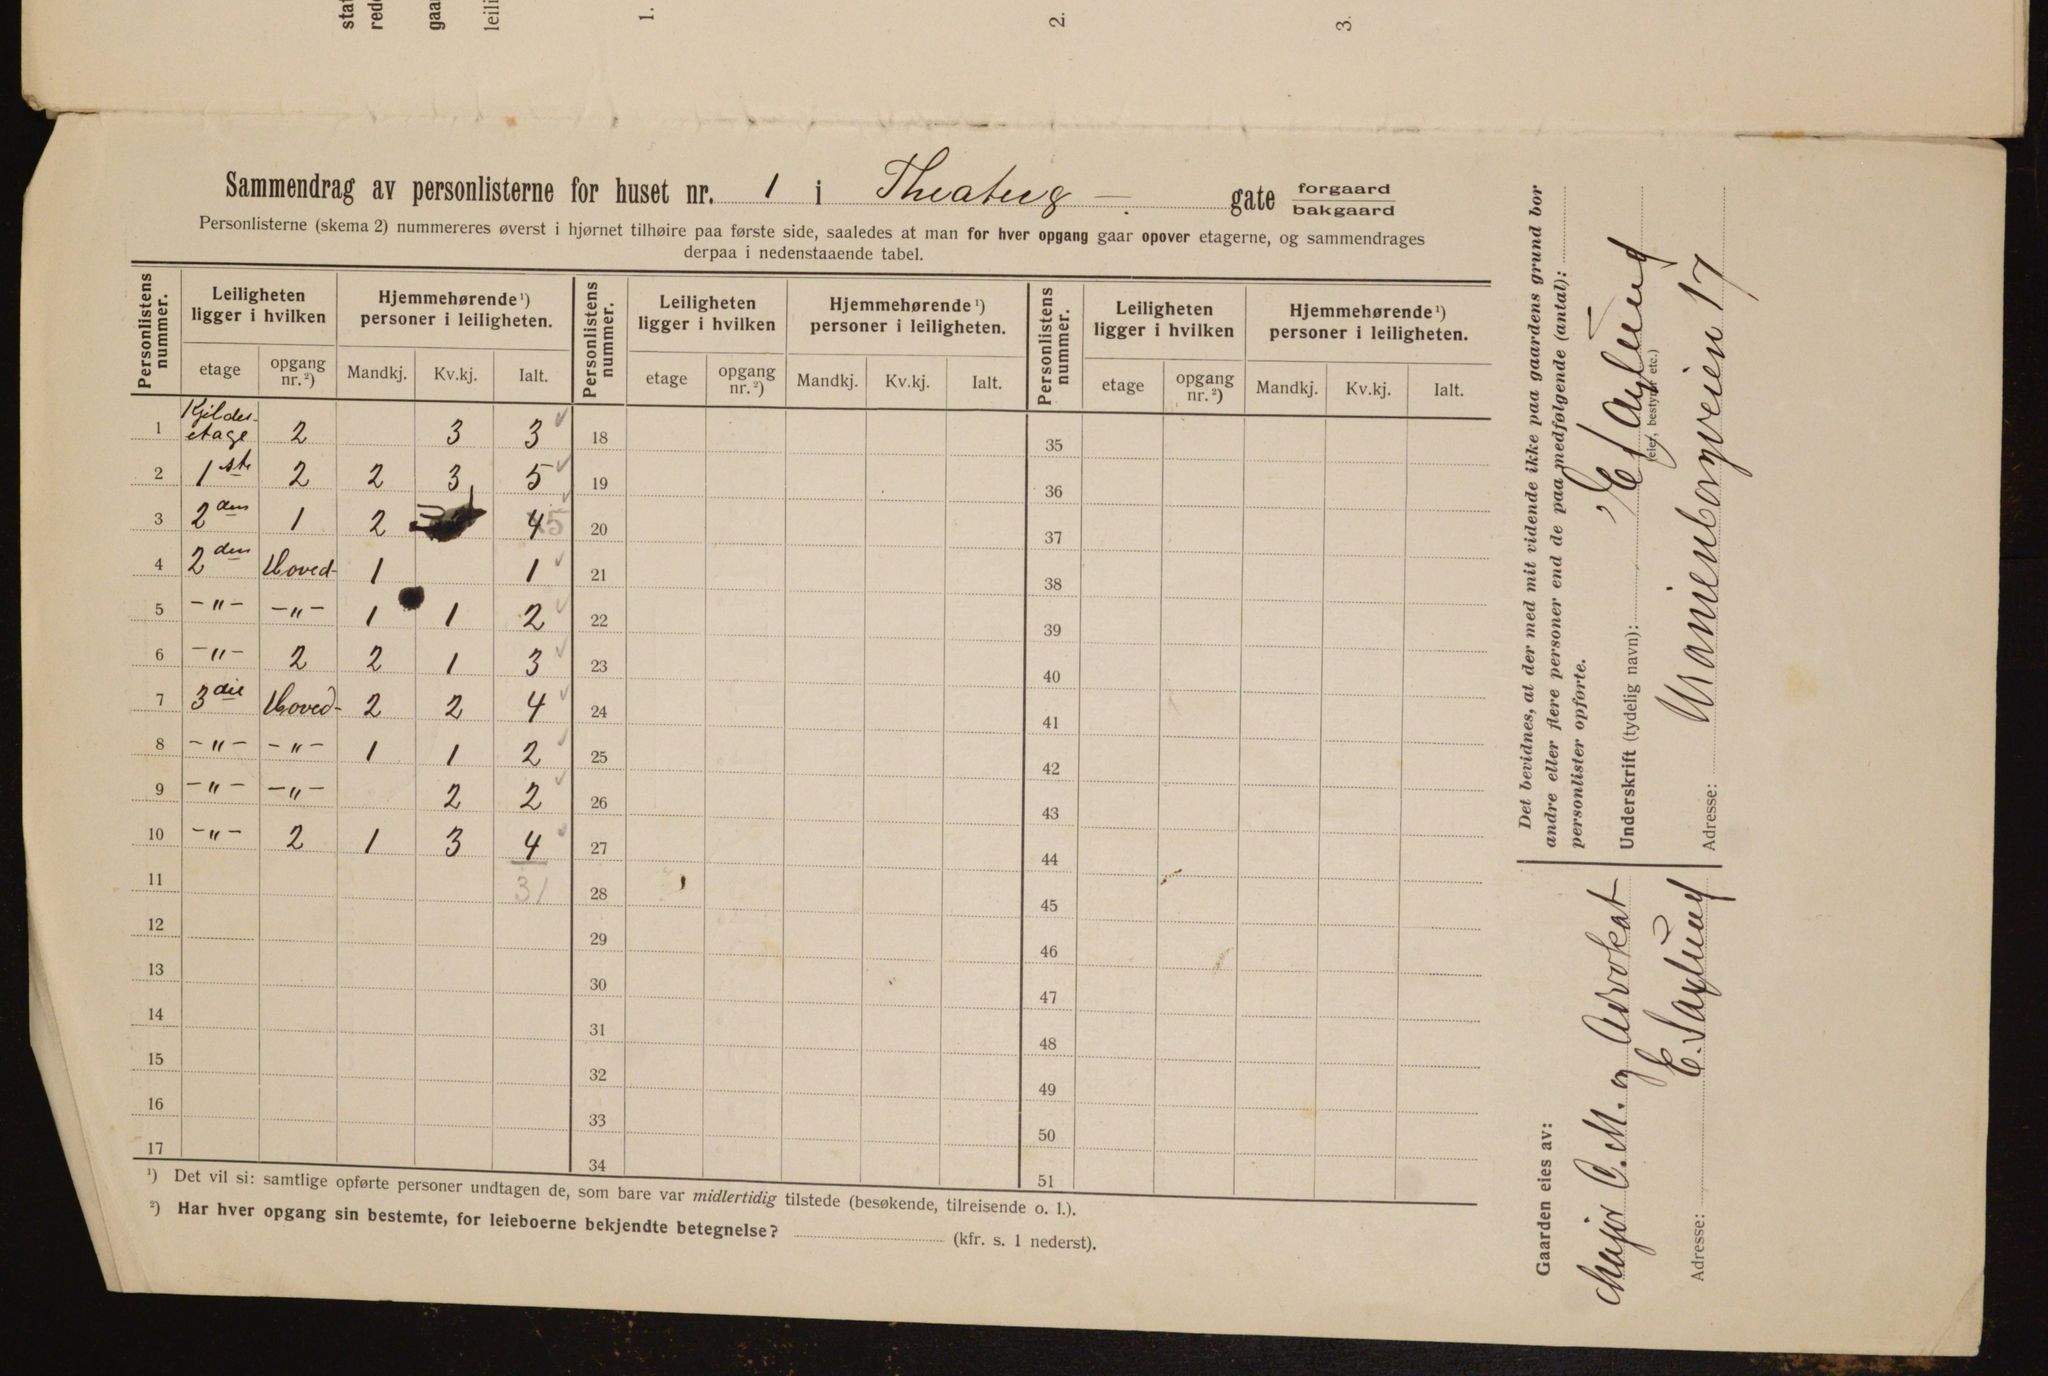 stat
rede
gaar
leili
1.
2.
3.
Sammendrag av personlisterne for huset nr. 1 i Theaterg — . gate forgaard
bakgaard
Personlisterne (skema 2) nummereres øverst i hjørnet tilhøire paa første side, saaledes at man for hver opgang gaar opover etagerne, og sammendrages
derpaa i nedenstaaende tabel.
Personlistens nummer. Leiligheten ligger i hvilken Hjemmehørende¹) personer i leiligheten. Personlistens nummer. Leiligheten ligger i hvilken Hjemmehørende¹) personer i leiligheten. Personlistens nummer. Leiligheten ligger i hvilken Hjemmehørende¹) personer i leiligheten.
etage opgang nr.²) Mandkj. Kv.kj. Ialt. etage opgang nr.²) Mandkj. Kv.kj. Ialt. etage opgang nr.²) Mandkj. Kv.kj. Ialt.
1 Kjelder-etage 2 3 3 18 35
2 1ste 2 2 3 5 19 36
3 2den 1 2 4 5 20 37
4 2den Hoved- 1 1 21 38
5 -"- -"- 1 1 2 22 39
6 -"- 2 2 1 3 23 40
7 3die Hoved- 2 2 4 24 41
8 -"- -"- 1 1 2 25 42
9 -"- -"- 2 2 26 43
10 -"- 2 1 3 4 27 44
11 31 28 45
12 29 46
13 30 47
14 31 48
15 32 49
16 33 50
17 34 51
¹) Det vil si: samtlige opførte personer undtagen de, som bare var midlertidig tilstede (besøkende, tilreisende o. l.).
²) Har hver opgang sin bestemte, for leieboerne bekjendte betegnelse? (kfr. s. 1 nederst).
Det bevidnes, at der med mit vidende ikke paa gaardens grund bor
andre eller flere personer end de paa medfølgende (antal):
personlister opførte.
Underskrift (tydelig navn): E Saxlund
(eier, bestyrer etc.)
Adresse: Marienborgveien 17
Gaarden eies av:
Major C. M. og Advokat
E. Saxlund
Adresse: